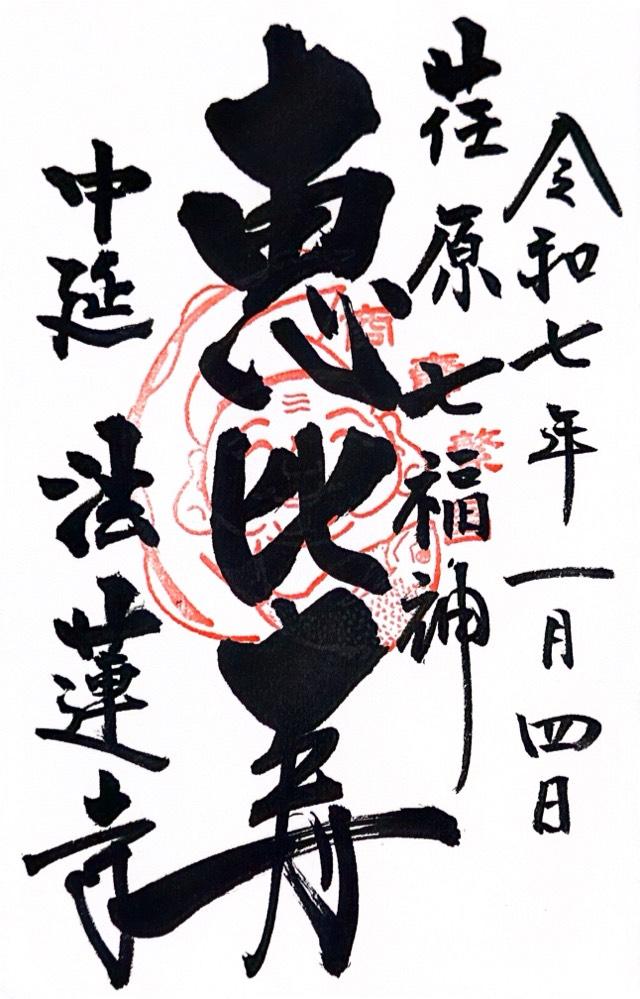 令和七年一月四日
荏原七福神
恵比寿
中延 法蓮寺
商売繁